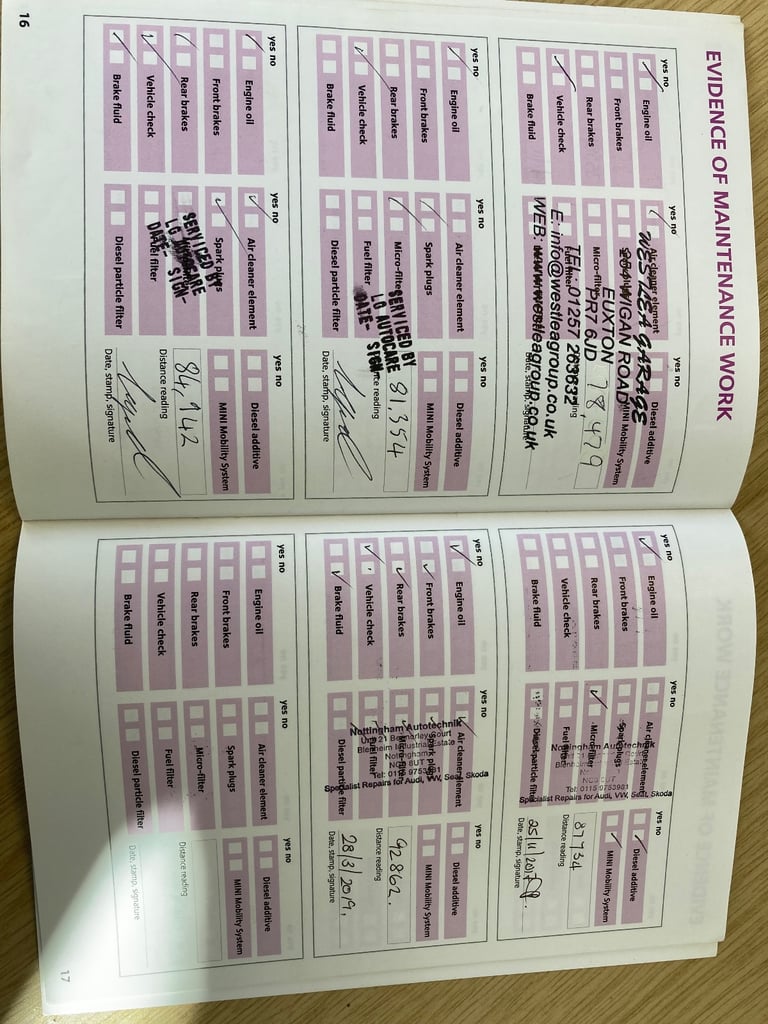 EVIDENCE OF MAINTENANCE WORK
yes no
yes no
yes no
Engine oil
Air cleaner element
Diesel additive
Front brakes
Spark plugs
MINI Mobility System
Rear brakes
Micro-filter
Vehicle check
Fuel filter
Brake fluid
WESTLEA GARAGE
WIGAN ROAD
EUXTON
PR7 6JD
TEL: 01257 263632
E: info@westleagroup.co.uk
WEB: www.westleagroup.co.uk
78,479
yes no
yes no
yes no
Engine oil
Air cleaner element
Diesel additive
Front brakes
Spark plugs
MINI Mobility System
Rear brakes
Micro-filter
Vehicle check
Fuel filter
Brake fluid
Diesel particle filter
Distance reading
81,354
Date, stamp, signature
SERVICED BY
LG AUTOCARE
DATE- SIGN-
yes no
yes no
yes no
Engine oil
Air cleaner element
Diesel additive
Front brakes
Spark plugs
MINI Mobility System
Rear brakes
Vehicle check
Fuel filter
Brake fluid
Diesel particle filter
84,942
Distance reading
Date, stamp, signature
SERVICED BY
LG AUTOCARE
DATE- SIGN-
16
yes no
yes no
yes no
Engine oil
Air cleaner element
Diesel additive
Front brakes
Spark plugs
MINI Mobility System
Rear brakes
Micro-filter
Vehicle check
Fuel filter
Brake fluid
Diesel particle filter
87734
Distance reading
25/11/2017
Date, stamp, signature
Nottingham Autotechnik
NG8 6UT
Tel: 0115 9753981
Specialist Repairs for Audi, VW, Seat, Skoda
yes no
yes no
yes no
Engine oil
Air cleaner element
Diesel additive
Front brakes
Spark plugs
MINI Mobility System
Rear brakes
Micro-filter
Vehicle check
Fuel filter
Brake fluid
Diesel particle filter
92862.
Distance reading
28/3/2019,
Date, stamp, signature
Nottingham Autotechnik
Blenheim Industrial Estate
Nottingham
NG8 6UT
Tel: 0115 9753981
Specialist Repairs for Audi, VW, Seat, Skoda
yes no
yes no
yes no
Engine oil
Air cleaner element
Diesel additive
Front brakes
Spark plugs
MINI Mobility System
Rear brakes
Micro-filter
Vehicle check
Fuel filter
Distance reading
Brake fluid
Diesel particle filter
Date, stamp, signature
17